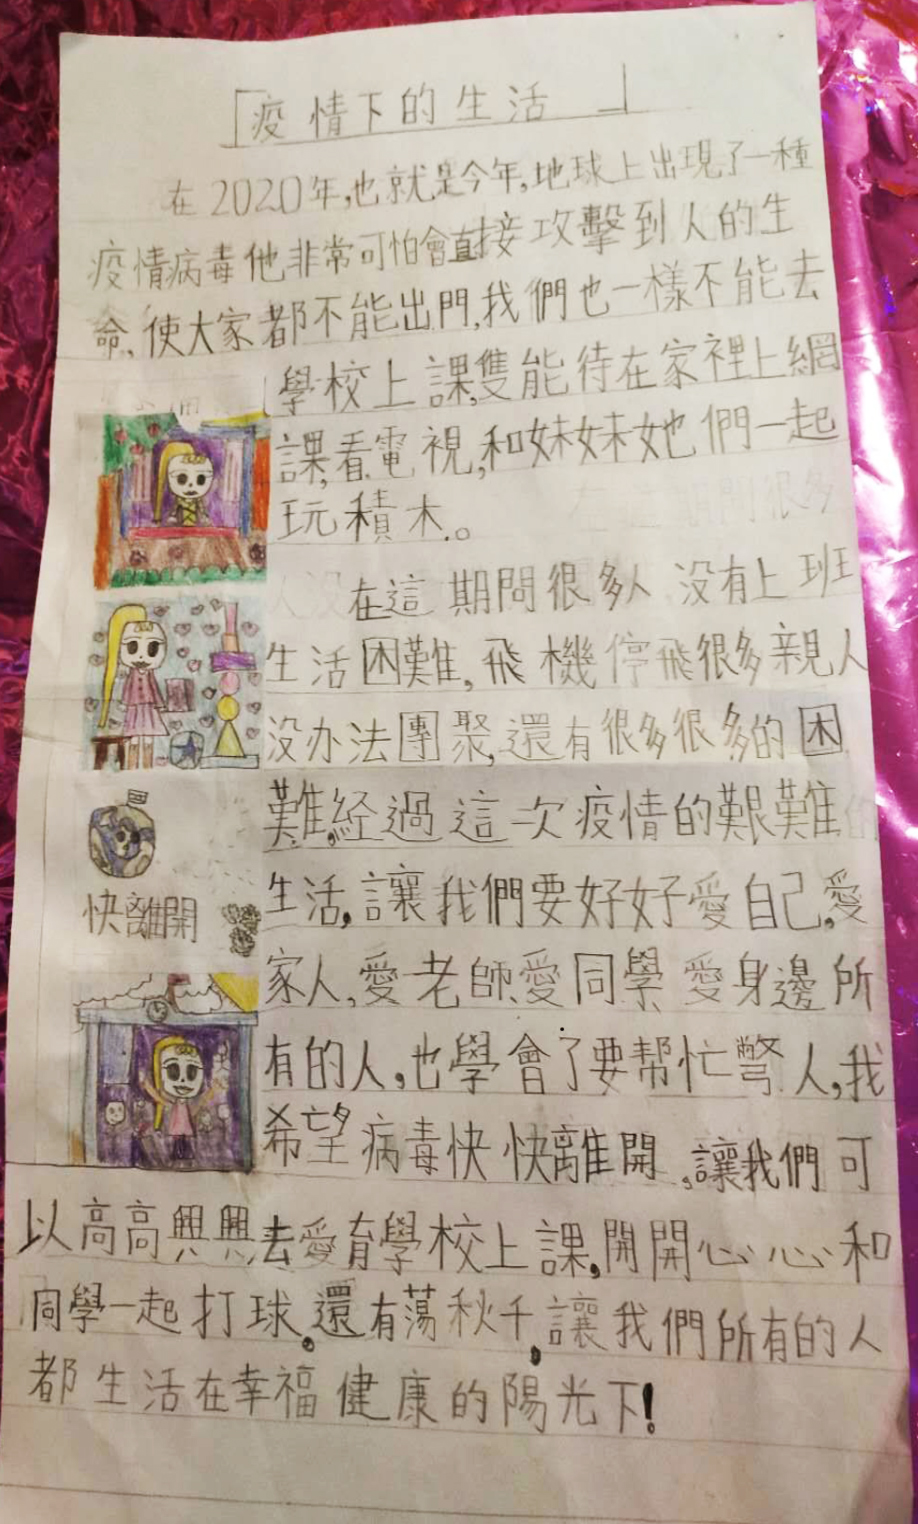 「疫情下的生活」
在2020年,也就是今年,地球上出現了一種
疫情病毒他非常可怕會直接攻擊到人的生
命、使大家都不能出門,我們也一樣不能去
學校上課,隻能待在家裡上網
課,看電視,和妹妹她們一起
玩積木.。
在這期間很多人沒有上班
生活困難,飛機停飛很多親人
沒办法團聚,還有很多很多的困
難,經過這次疫情的艱難
生活,讓我們要好好愛自己,愛
快離開
家人,愛老師、愛同學 愛身邊所
有的人,也學會了要帮忙彆人,我
希望病毒快快離開,讓我們可
以高高興興去愛育學校上課,開開心心和
同學一起打球。還有蕩秋千,讓我們所有的人
都生活在幸福健康的陽光下!